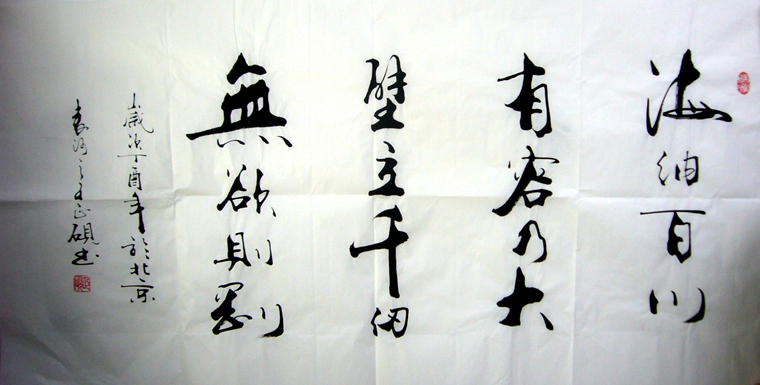 海納百川
有容乃大
壁立千仞
無欲則剛
歲次丁酉年於北京
正硯书